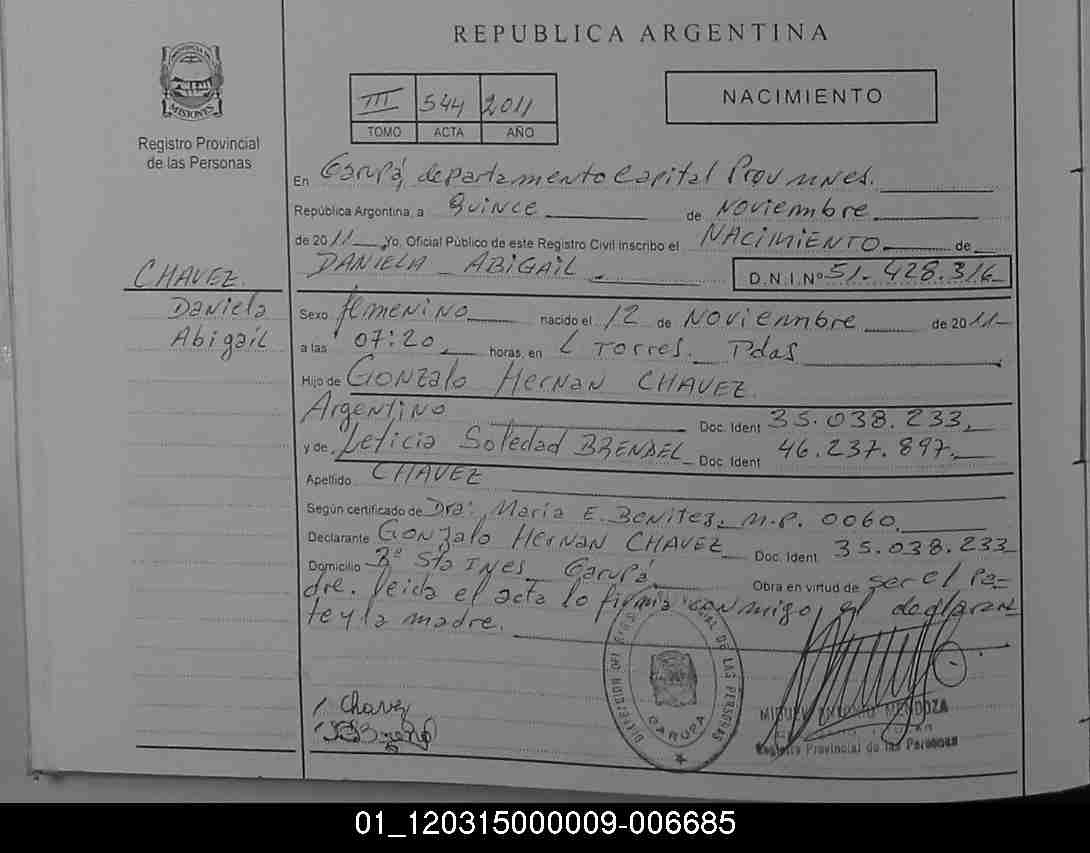 REPUBLICA ARGENTINA
PROVINCIA DE
MISIONES
Registro Provincial
de las Personas
III 544 2011
TOMO ACTA AÑO
NACIMIENTO
En Garupá, departamento Capital Prov. Mnes.
República Argentina, a Quince de Noviembre
de 2011 Yo, Oficial Público de este Registro Civil inscribo el NACIMIENTO de
DANIELA ABIGAIL D.N.I.Nº 51.428.316
CHAVEZ
Daniela
Abigail
Sexo femenino nacido el 12 de Noviembre de 2011
a las 07:20 horas, en L Torres. Pdas
Hijo de Gonzalo Hernan CHAVEZ
Argentino Doc. Ident 35.038.233
y de Leticia Soledad BRENDEL Doc. Ident 46.237.897
Apellido CHAVEZ
Según certificado de Dra: Maria E. Benitez. M.P. 0060
Declarante Gonzalo Hernan CHAVEZ Doc. Ident 35.038.233
Domicilio Bº Sta Ines Garupá Obra en virtud de ser el Pa-
dre. leida el acta lo firma conmigo, el declaran
te y la madre.
DE LAS PERSONAS
GARUPA
Chavez
MIGUEL ANTONIO MENDOZA
Registro Provincial de las Personas
01_120315000009-006685